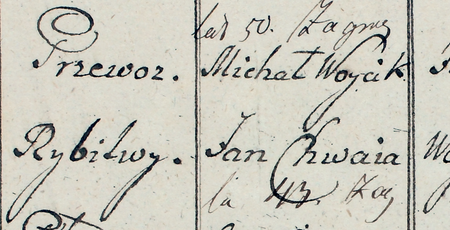 lat 50. Zagrod
Przewoz. Michał Woycik
Rybitwy. Jan Chwaia
la 43. Zag